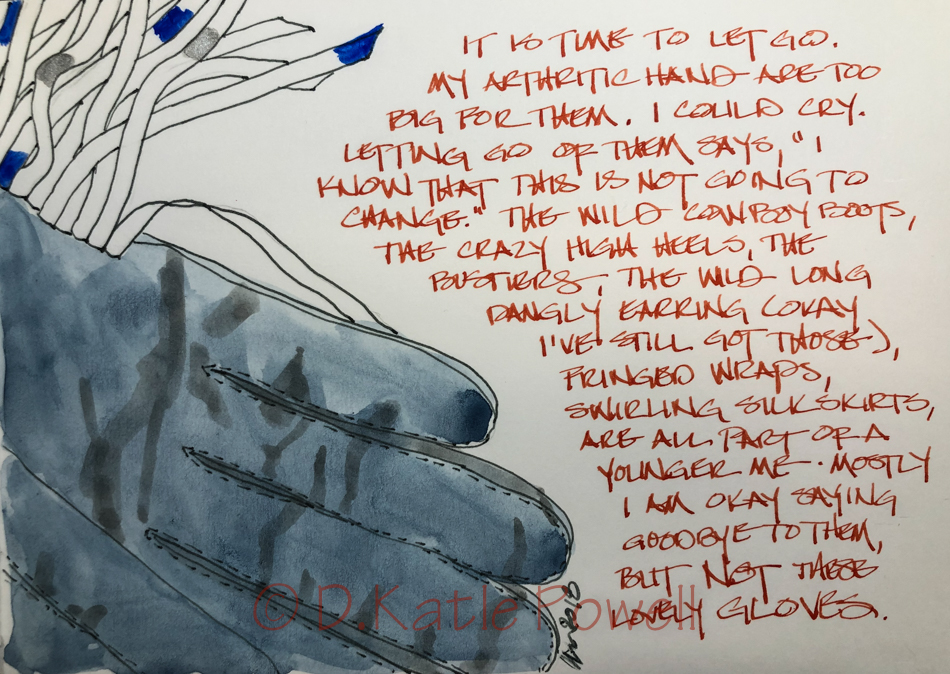 IT IS TIME TO LET GO.
MY ARTHRITIC HAND ARE TOO
BIG FOR THEM. I COULD CRY.
LETTING GO OF THEM SAYS, "I
KNOW THAT THIS IS NOT GOING TO
CHANGE." THE WILD COWBOY BOOTS,
THE CRAZY HIGH HEELS, THE
BUSTIERS, THE WILD LONG
DANGLY EARRING (OKAY
I'VE STILL GOT THOSE),
FRINGED WRAPS,
SWIRLING SILK SKIRTS,
ARE ALL PART OF A
YOUNGER ME. MOSTLY
I AM OKAY SAYING
GOODBYE TO THEM,
BUT NOT THESE
LOVELY GLOVES.
© D. Katie Powell